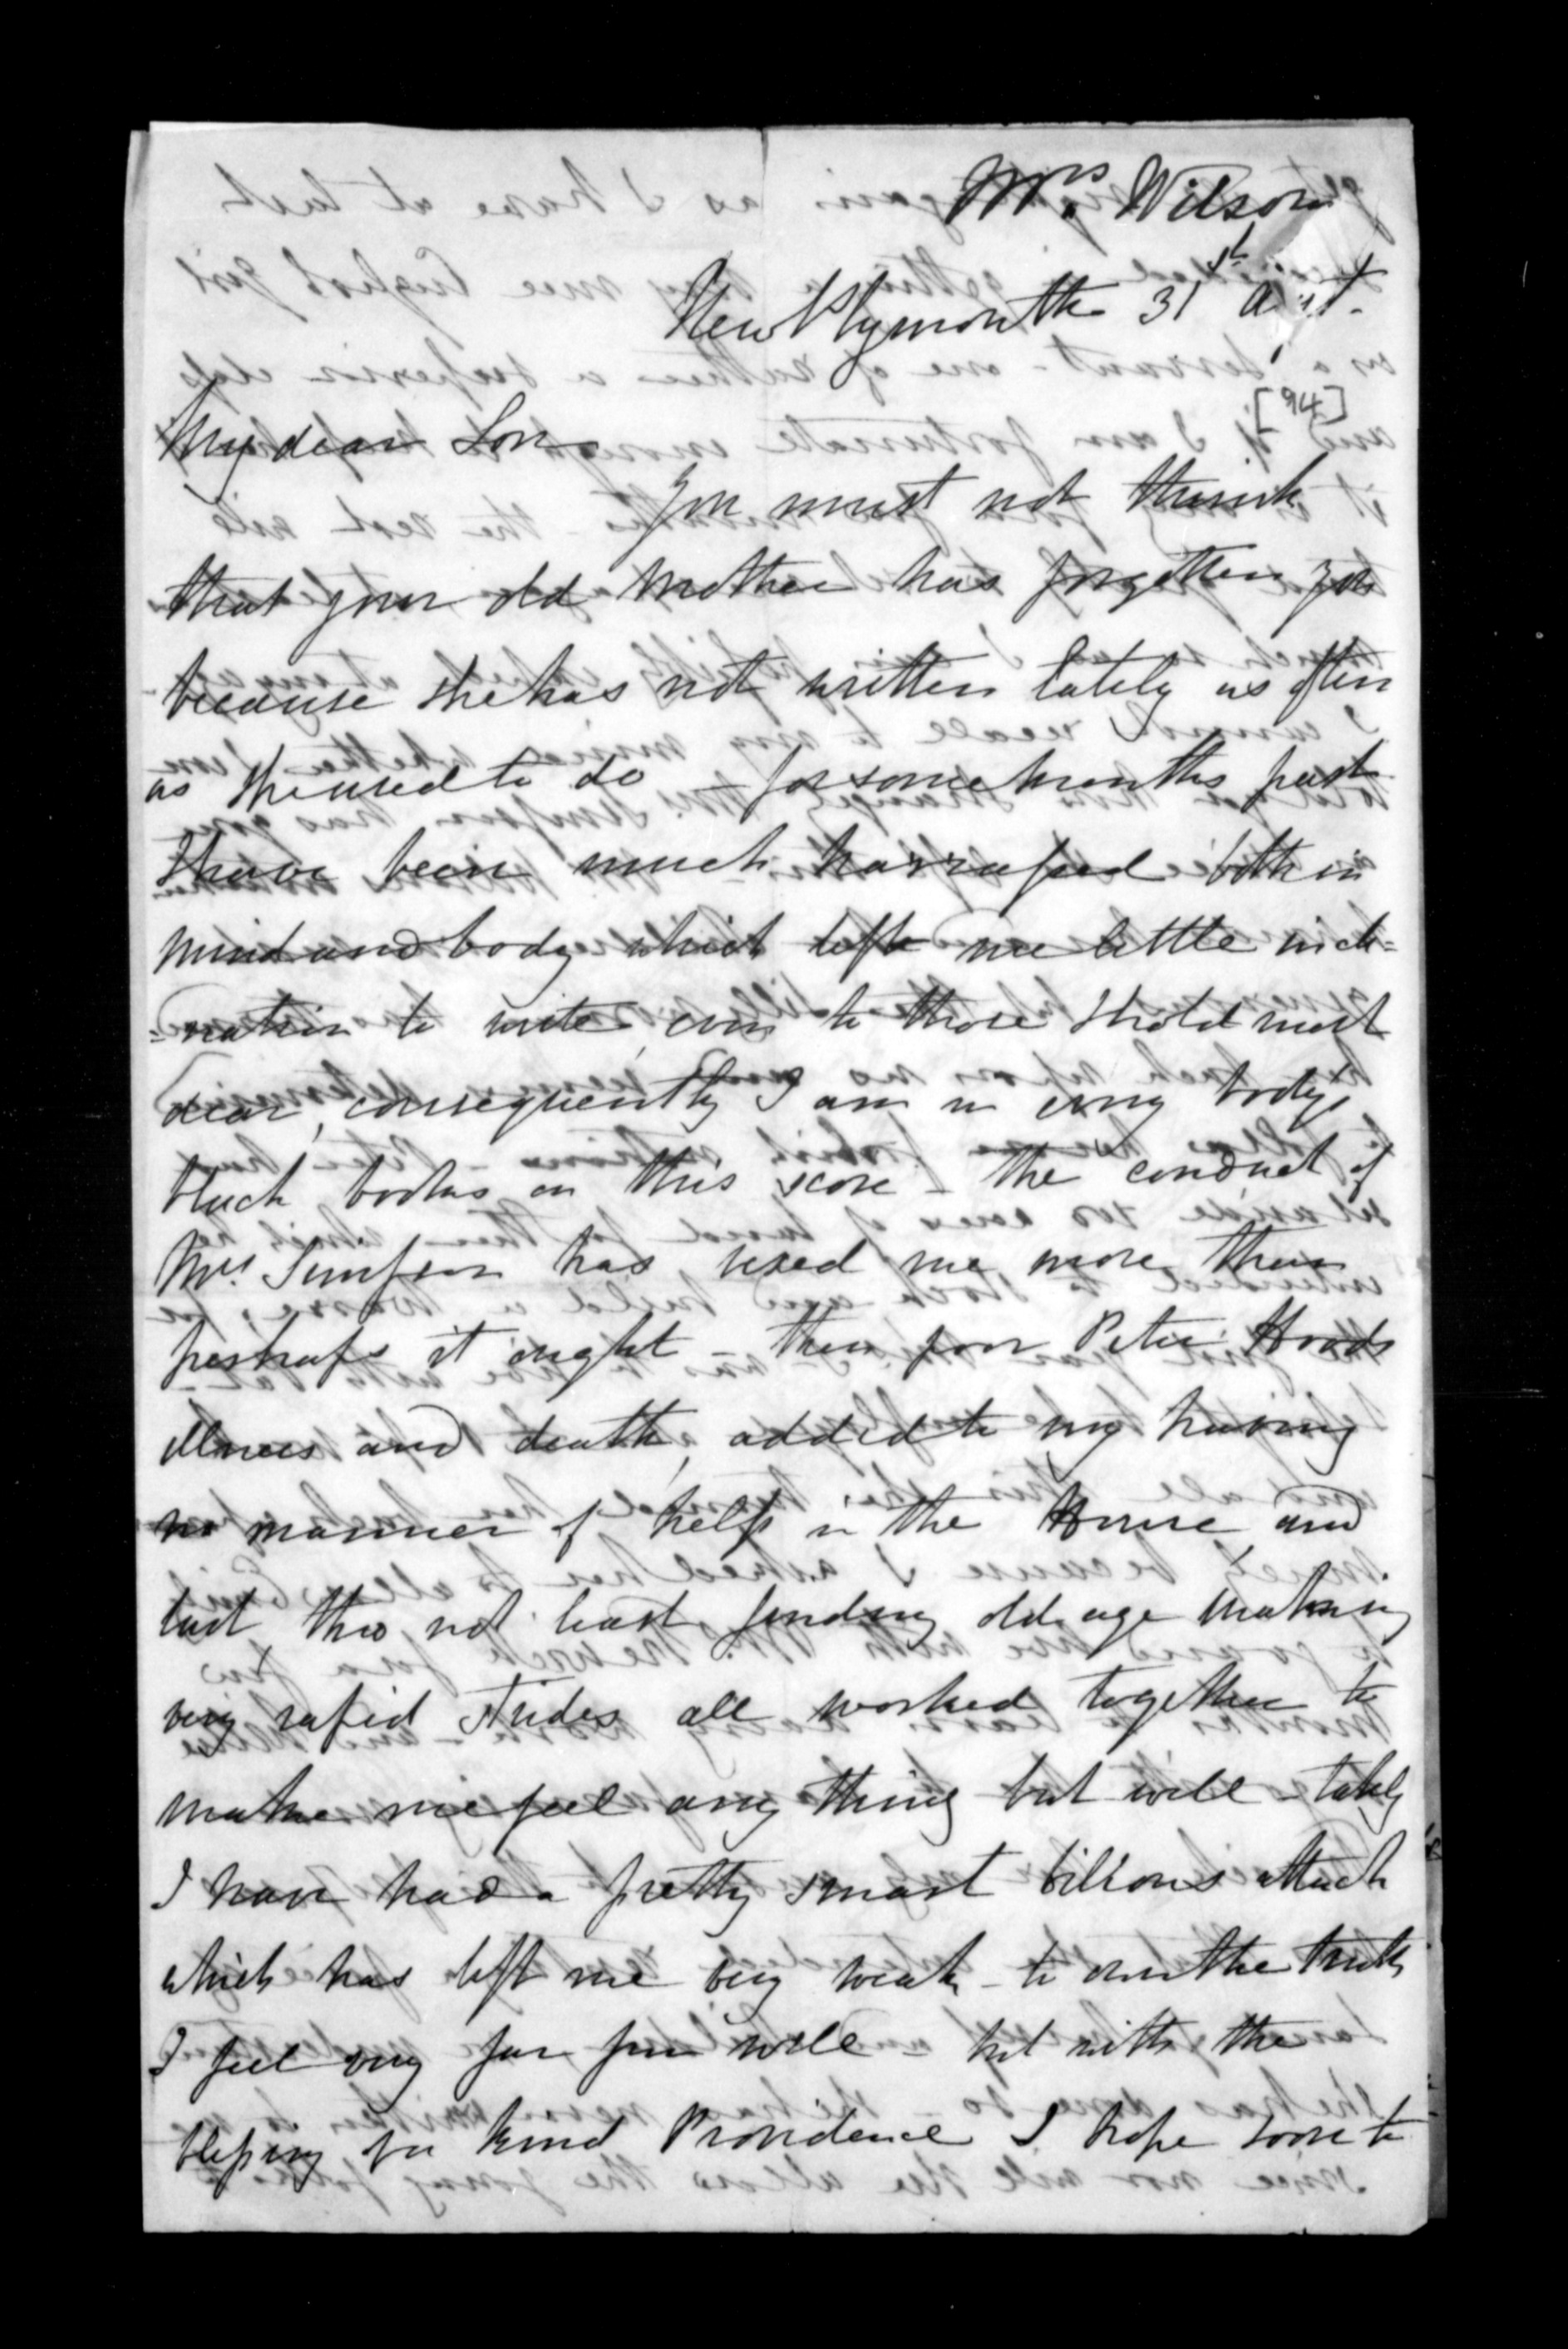 Mrs. Wilson
New Plymouth 31st Augt.
[94]
My dear Son
You must not think
that your old Mother has forgotten you
because she has not written lately as often
as she used to do - for some months past
I have been much harrassed both in
mind and body which left me little incli=
=nation to write, even to those I hold most
dear, consequently I am in every body's
black books on this score - the conduct of
Mrs. Simpson has vexed me more than
perhaps it ought - then poor Peter Hoods
illness and death, added to my having
no manner of help in the House, and
last, tho not least, finding old age making
very rapid strides all worked together to
make me feel any thing but well - lately
I have had a pretty smart bilious attack
which has left me very weak - to own the truth
I feel very far from well - but with the
blessing of a kind Providence I hope soon to